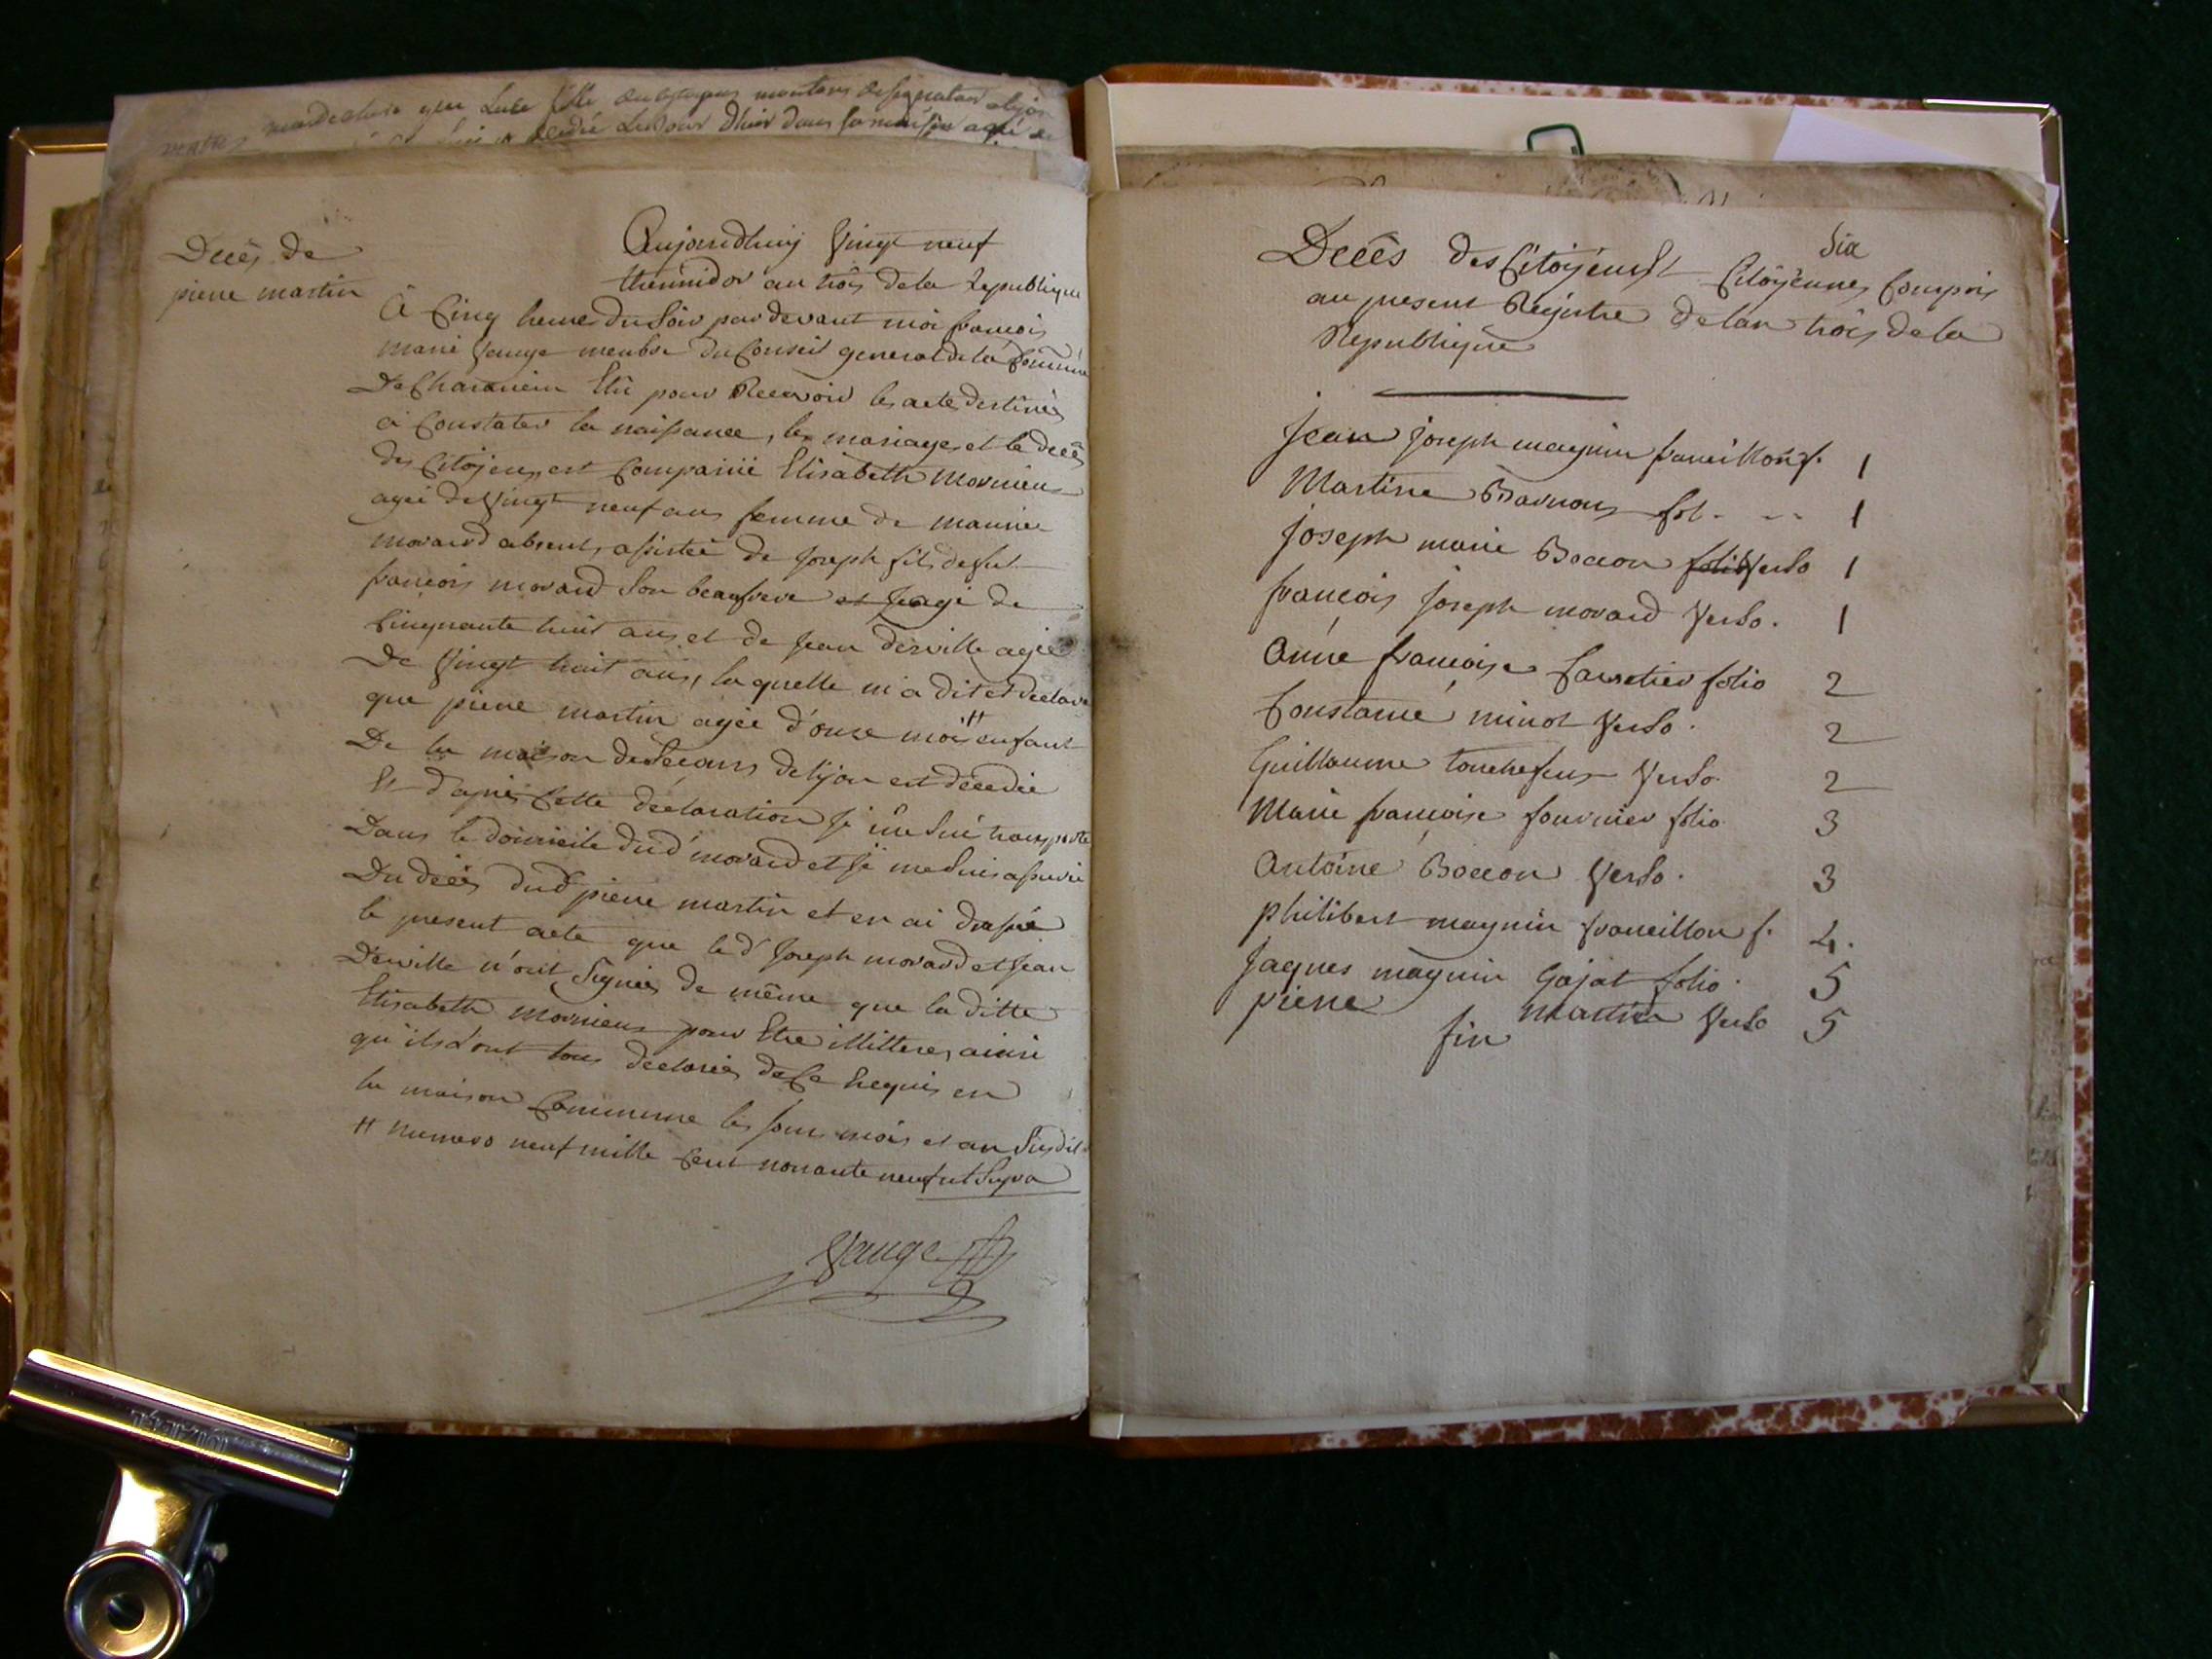 que Luce fille
decedée Le jour Dhier dans sa maison agée de
Decès de
pierre martin
Aujourdhuij Vingt neuf
thermidor an trois de la Republique
à Cinq heures du Soir par devant moi francois
marie Vauge membre du Conseil general de la Comune
De Charancin Elû pour Recevoir les actes destinés
à Constater la naissance, les mariages et le décès
des Citoÿens, est Comparüe Elisabeth Mornieux
agée de Vingt neuf ans femme de
morard absent, assistée de Joseph fils de fut
francois morard Son beaufrere et agé de
Cinquante huit ans, et de Jean Derville agée
De Vingt huit ans, la quelle m'a dit et declaré
que pierre martin agée d'onze mois # enfant
De la maison de Secours de Lÿon est décedée
Et d'après Cette declaration Je me Suis transporté
Dans le domicile dud morard et je me Suis assurée
Du décès dud pierre martin et en ai drессé
le present acte que le d Joseph morard et Jean
Derville n'ont Signés de même que la ditte
Elisabeth Mornieux pour Etre illitterés, ainsi
qu'ils L'ont tous declarés de Ce Requis en
la maison Commune les jour mois et an Susdit
# numero neuf mille Cent nonante neuf ut Supra
Vauge
Six
Decès des Citoÿens Et Citoÿennes Compris
au present Registre de lan trois de la
Republique
Jean joseph magnin francillon f. 1
Martine Barnoux fol. - - 1
Joseph marie Boccon folio Verso 1
françois joseph morard Verso. 1
Anne françoise Carretier folio 2
Constance minot Verso. 2
Guillaume touchefeux Verso. 2
Marie françoise fournier folio 3
Antoine Boccon Verso. 3
philibert magnin francillon f. 4.
Jaques magnin Gajat folio. 5
pierre Martin Verso 5
fin